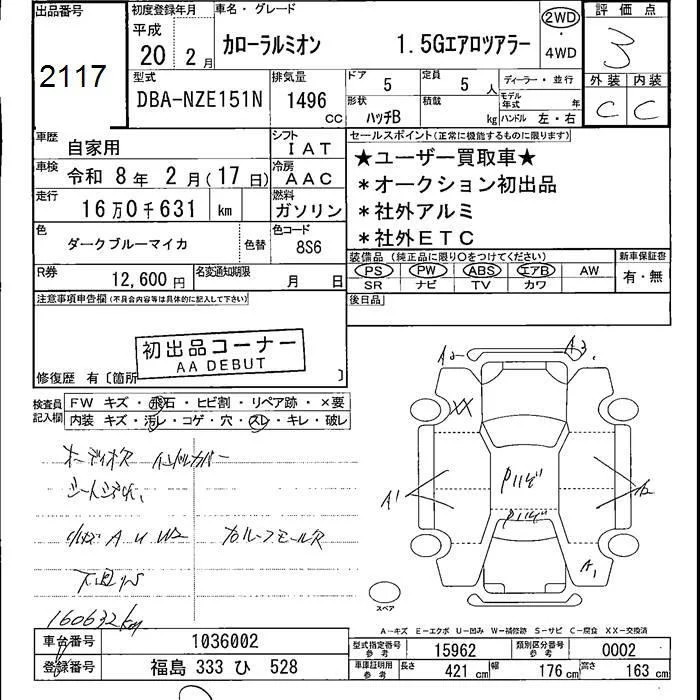 出品番号 初度登録年月 車名・グレード 2WD 評価点
2117 平成 20 2月 カローラルミオン 1.5Gエアロツアラー ・ 4WD 3
型式 排気量 ドア 5 定員 5人 ディーラー・並行 外装 内装
DBA-NZE151N 1496 cc 形状 ハッチB 積載 kg モデル年式 年 ハンドル 左・右 C C
車歴 自家用 シフト IAT セールスポイント(正常に機能するものに限ります)
車検 令和 8年 2月(17日) 冷房 AAC ★ユーザー買取車★
走行 16万0千631 km 燃料 ガソリン *オークション初出品
*社外アルミ
色 ダークブルーマイカ 色替 色コード 8S6 *社外ETC
装備品(純正品に限り○をつけてください) 新車保証書
R券 12,600円 名変通知期限 月 日 PS PW ABS エアB AW 有・無
SR ナビ TV カワ
注意事項申告欄(不具合内容等は具体的に記入して下さい) 後日品
初出品コーナー
AA DEBUT
修復歴 有〔箇所 〕
検査員記入欄 FW キズ・飛石・ヒビ割・リペア跡・×要
内装 キズ・汚レ・コゲ・穴・スレ・キレ・破レ
A2 A3
XX
A1 A2
A1
160632km
スペア
A―キズ E―エクボ U―凹み W―補修跡 S―サビ C―腐食 XX―交換済
車台番号 1036002 型式指定番号 参考 15962 類別区分番号 参考 0002
登録番号 福島 333 ひ 528 車庫証明用 参考 長さ 421 cm 幅 176 cm 高さ 163 cm